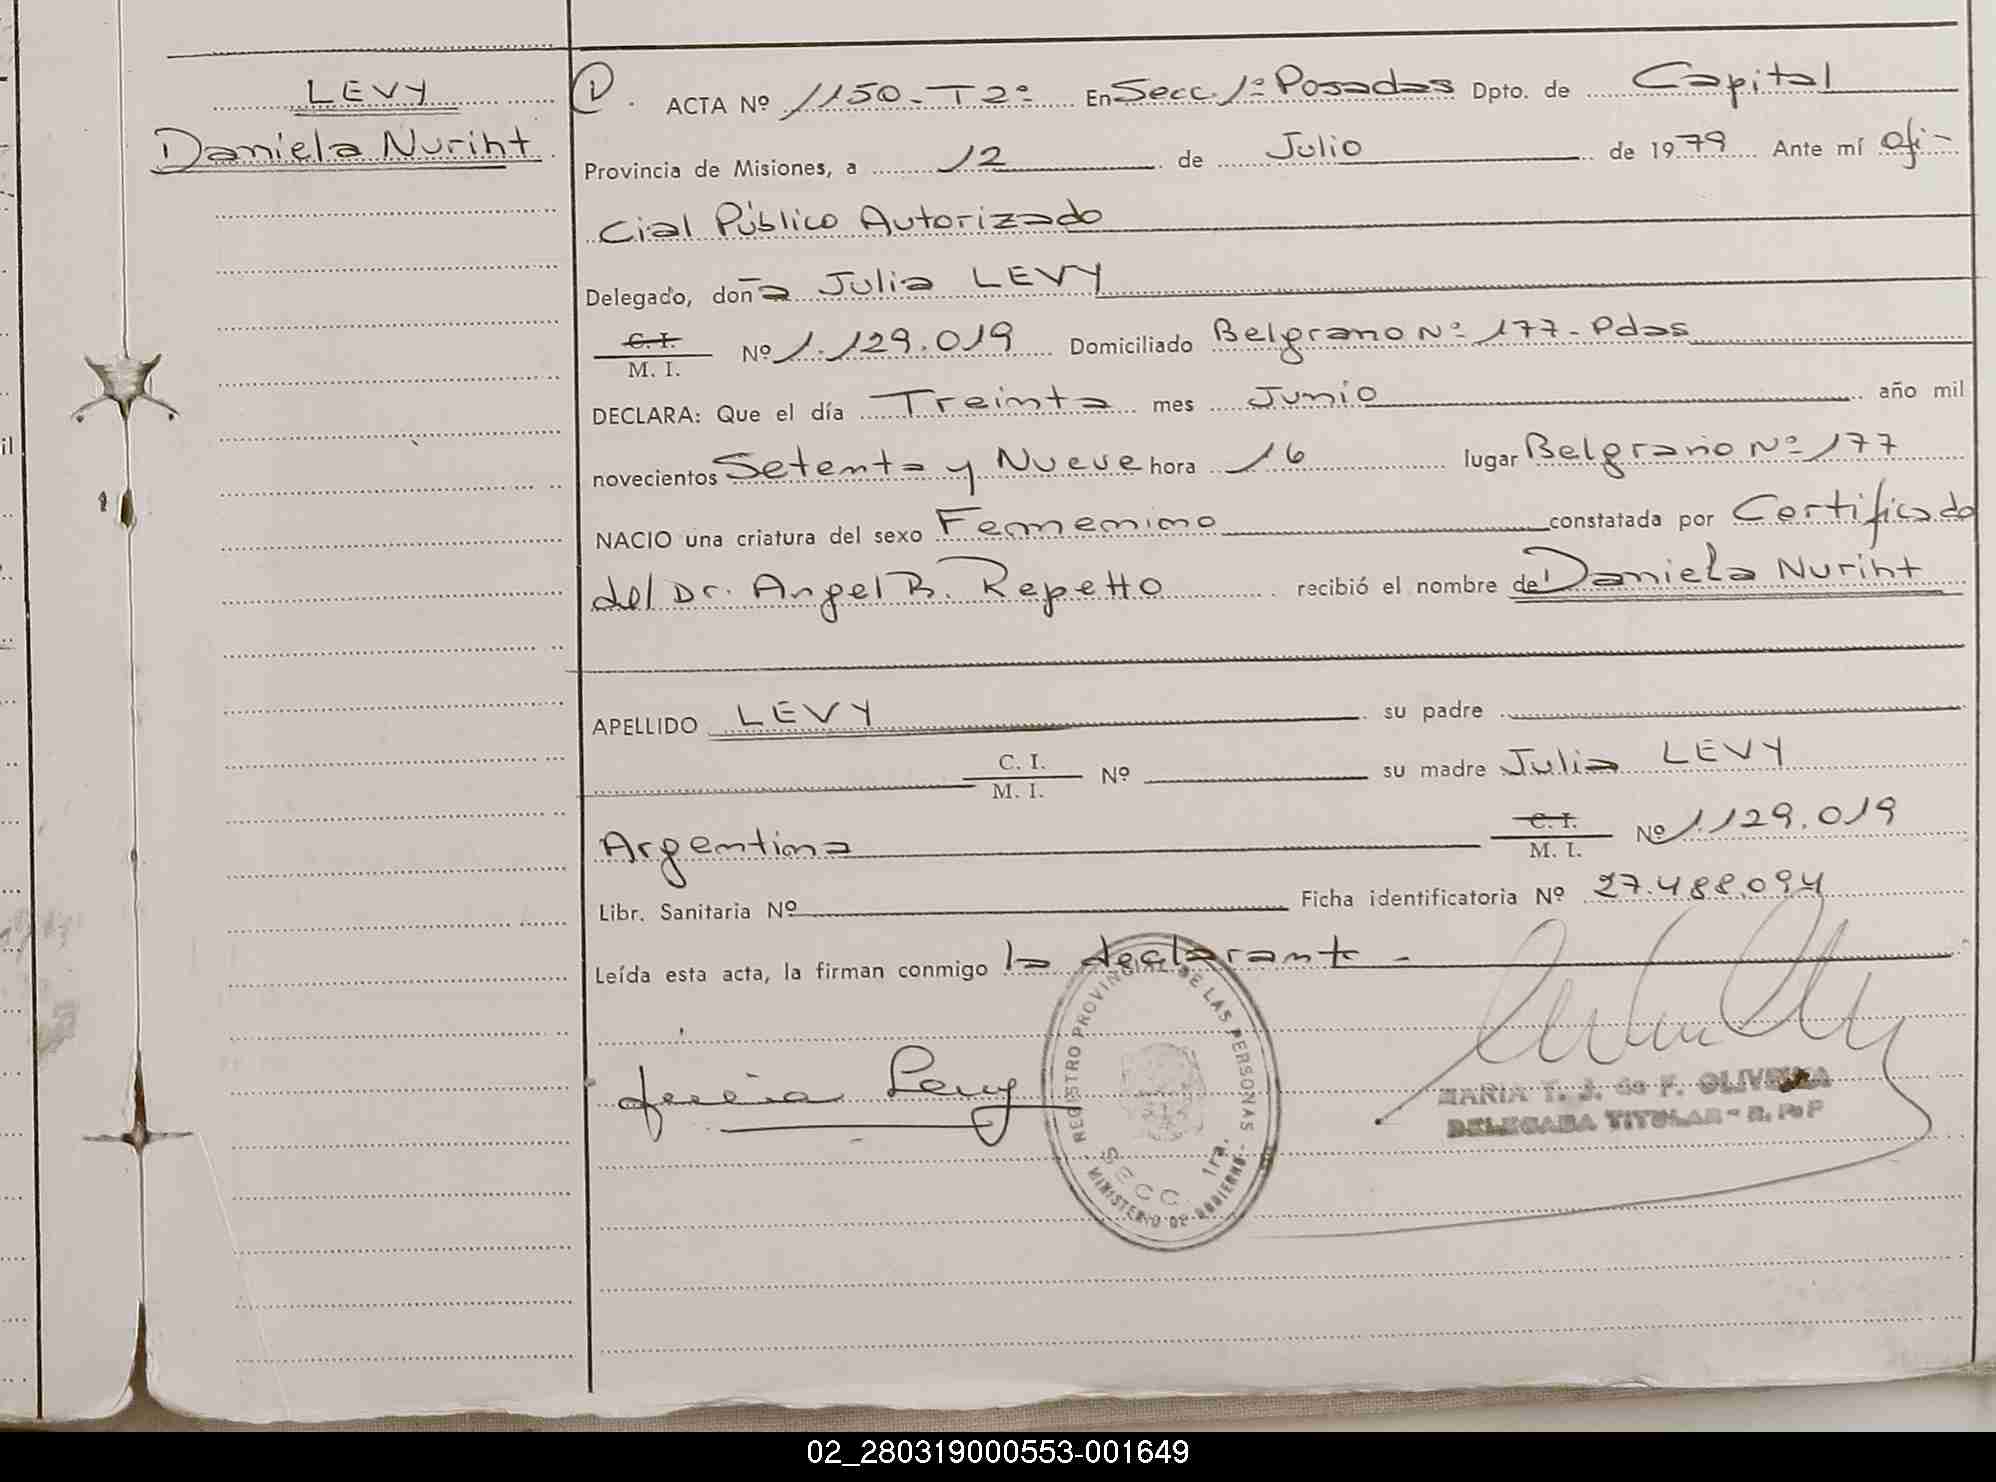 LEVY
Daniela Nuriht
1. ACTA Nº 1150-T2º En Secc. 1ª Posadas Dpto. de Capital
Provincia de Misiones, a 12 de Julio de 1979 Ante mí ofi-
cial Público Autorizado
Delegado, doña Julia LEVY
C. I.
M. I. Nº 1.129.019 Domiciliado Belgrano Nº 177-Pdas
DECLARA: Que el día Treinta mes Junio año mil
novecientos Setenta y Nueve hora 16 lugar Belgrano Nº 177
NACIO una criatura del sexo Femenino constatada por Certificado
del Dr. Angel B. Repetto recibió el nombre de Daniela Nuriht
APELLIDO LEVY su padre
C. I.
M. I. Nº su madre Julia LEVY
Argentina C. I.
M. I. Nº 1.129.019
Libr. Sanitaria Nº Ficha identificatoria Nº 27.488.094
Leída esta acta, la firman conmigo la declarante -
Julia Levy
REGISTRO PROVINCIAL DE LAS PERSONAS
SECC. 1ra.
MINISTERIO DE GOBIERNO
MARIA T. J. de F. OLIVEIRA
DELEGADA TITULAR - R. P. P
il
02_280319000553-001649